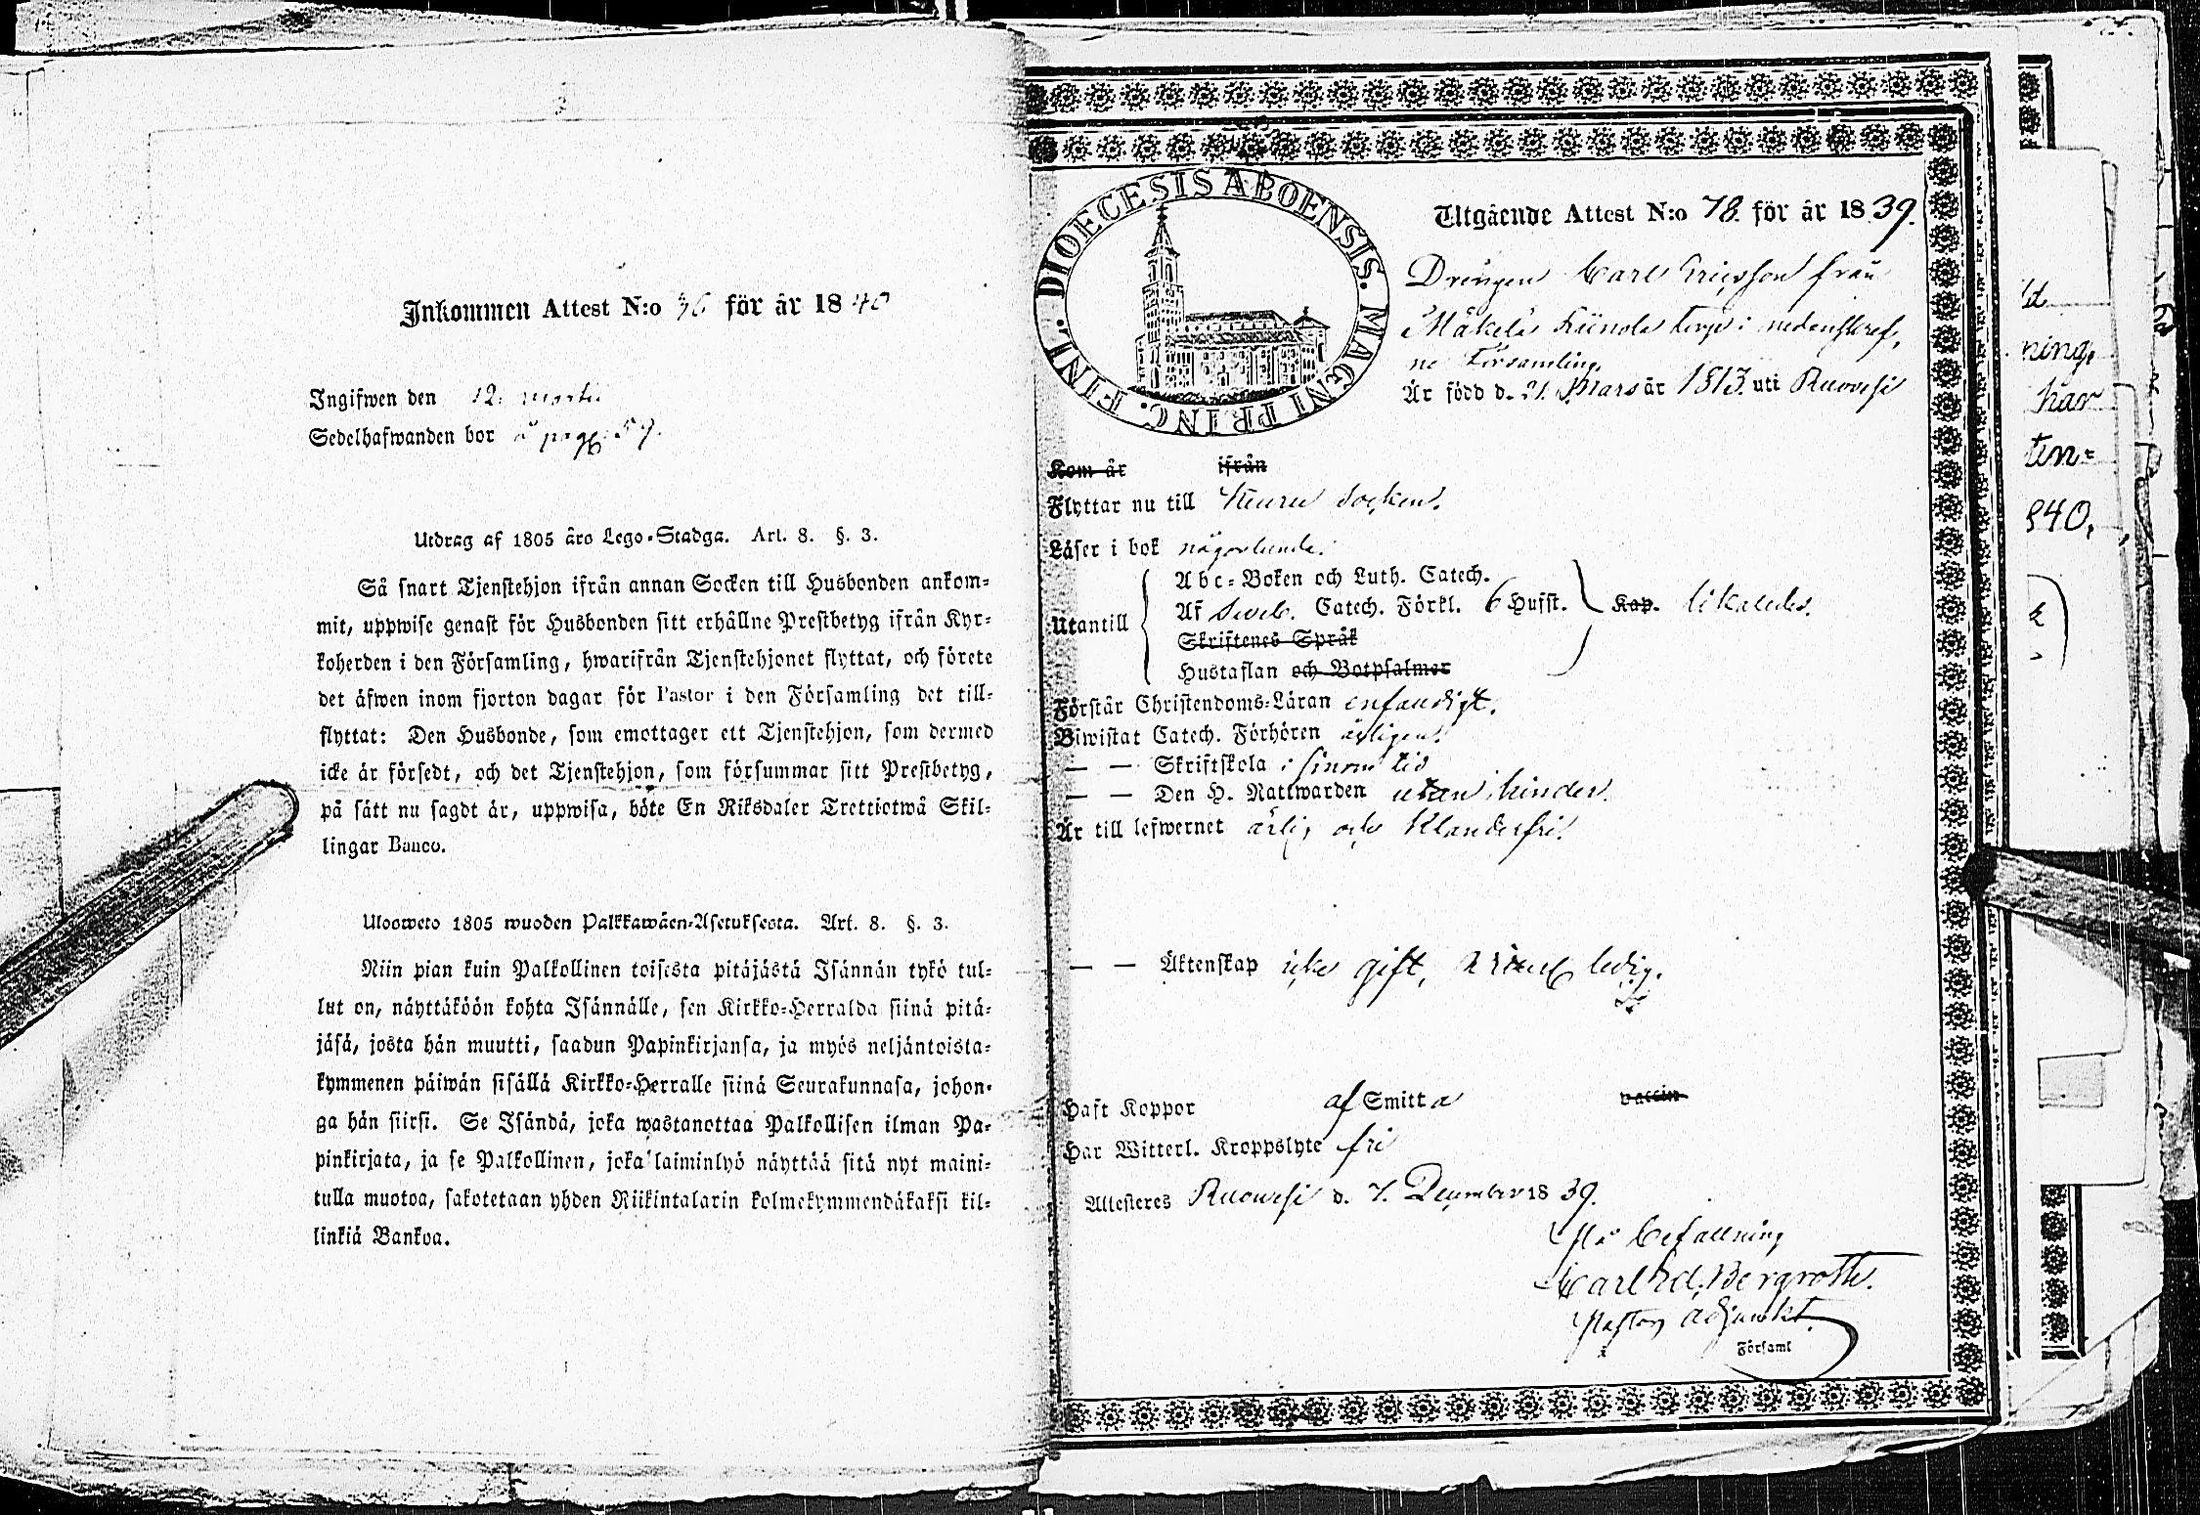 Inkommen Attest N:o 56 för år 1840
Ingifwen den 12. martii
Sedelhafwanden bor å pag: 59.
Utdrag af 1805 års Lego-Stadga. Art. 8. §. 3.
Så snart Tjenstehjon ifrån annan Socken till Husbonden ankom-
mit, uppwise genast för Husbonden sitt erhållne Prestbetyg ifrån Kyr-
koherden i den Församling, hwarifrån Tjenstehjonet flyttat, och förete
det äfwen inom fjorton dagar för Pastor i den Församling det till-
flyttat: Den Husbonde, som emottager ett Tjenstehjon, som dermed
icke är försedt, och det Tjenstehjon, som försummar sitt Prestbetyg,
på sätt nu sagdt är, uppwisa, böte En Riksdaler Trettiotwå Skil-
lingar Banco.
Ulosweto 1805 wuoden Palkkawäen-Asetuksesta. Art. 8. §. 3.
Niin pian kuin Palkollinen toisesta pitäjästä Isännän tykö tul-
lut on, näyttäköön kohta Isännälle, sen Kirkko-Herralda siinä pitä-
jäsä, josta hän muutti, saadun Papinkirjansa, ja myös neljäntoista-
kymmenen päiwän sisällä Kirkko-Herralle siinä Seurakunnasa, johon-
ga hän siirsi. Se Isändä, joka wastanottaa Palkollisen ilman Pa-
pinkirjata, ja se Palkollinen, joka laiminlyö näyttää sitä nyt maini-
tulla muotoa, sakotetaan yhden Riikintalarin kolmekymmendäkaksi kil-
linkiä Bankoa.
DIOECESIS ABOENSIS. MAGNI PRINC. FINL.
Utgående Attest N:o 78. för år 1839.
Drängen Carl Ericsson från
Mäkelä torp i nedanskref,
ne Församling.
Är född d. 21. Mars år 1813. uti Ruovesi
Kom år ifrån
Flyttar nu till Kuru Socken.
Läser i bok någorlunda.
Utantill
Abc-Boken och Luth. Catech.
Af Sweb. Catech. Förkl. 6 Hufst. Kap. likaledes.
Skriftenes Språk
Hustaflan och Botpsalmer
Förstår Christendoms-Läran enfaldigt.
Biwistat Catech. Förhören årligen.
— — Skriftskola i sinom tid
— — Den H. Nattwarden utan hinder.
Är till lefwernet ärlig och klanderfri.
— — Äktenskap icke gift, utan ledig.
Haft Koppor af Smitta vaccin
Har Witterl. Kroppslyte fri
Attesteres Ruovesi d. 7. December 1839.
På befallning
Carl Ed. Bergroth.
Pastors Adjunkt.
Församl
ning,
har
ten-
840,